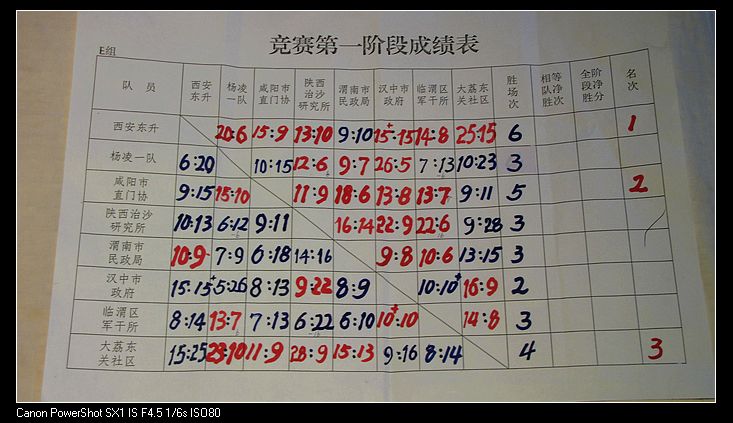 竞赛第一阶段成绩表
E组
队 员 西安东升 杨凌一队 咸阳市直门协 陕西治沙研究所 渭南市民政局 汉中市政府 临渭区军干所 大荔东关社区 胜场次 相等队净胜次 全阶段净胜分 名次
西安东升 20:6 15:9 13:10 9:10 15+:15 14:8 25:15 6 1
杨凌一队 6:20 10:15 12:6 9:7 26:5 7:13 10:23 3
咸阳市直门协 9:15 15:10 11:9 18:6 13:8 13:7 9:11 5 2
陕西治沙研究所 10:13 6:12 9:11 16:14 22:9 22:6 9:28 3
渭南市民政局 10:9 7:9 6:18 14:16 9:8 10:6 13:15 3
汉中市政府 15:15+ 5:26 8:13 9:22 8:9 10:10+ 16:9 2
临渭区军干所 8:14 13:7 7:13 6:22 6:10 10+:10 14:8 3
大荔东关社区 15:25 23:10 11:9 28:9 15:13 9:16 8:14 4 3
Canon PowerShot SX1 IS F4.5 1/6s ISO80